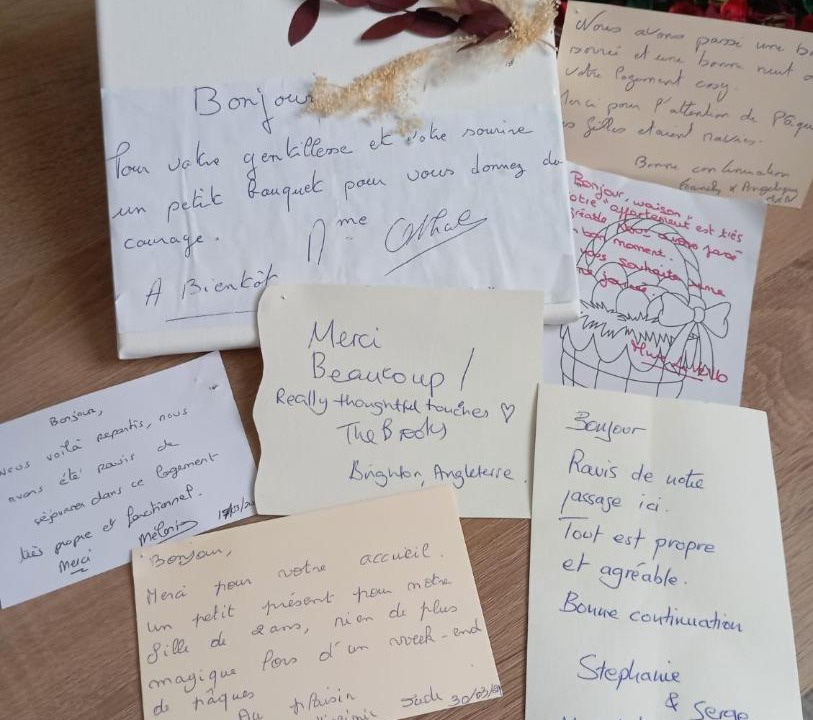 Bonjour
Pour votre gentillesse et votre sourire
un petit bouquet pour vous donner du
courage.
Mme
A Bientôt
Nous avons passé une
et une bonne nuit
votre logement cosy.
Merci pour l'attention de Pâques
filles étaient ravies.
Bonne continuation
Bonjour, waison,
votre appartement est très
agréable
bon moment.
vous souhaite une
Merci
Beaucoup!
Really thoughtful touches ♡
The Brooks
Brighton, Angleterre.
Bonjour,
nous voilà repartis, nous
avons été ravis de
séjourner dans ce logement
très propre et fonctionnel.
Merci
Bonjour,
Merci pour votre accueil.
un petit présent pour notre
fille de 2 ans, rien de plus
magique lors d'un week-end
de pâques
Au plaisir
30/03/
Bonjour
Ravis de notre
passage ici.
Tout est propre
et agréable.
Bonne continuation
Stephanie
& Serge